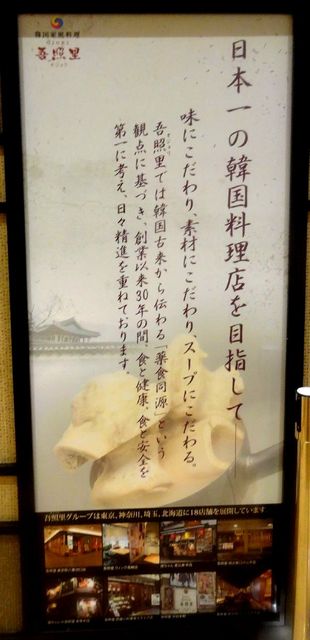 韓国家庭料理
吾照里
オジョリ
日本一の韓国料理店を目指して
味にこだわり、素材にこだわり、スープにこだわる。
吾照里では韓国古来から伝わる「薬食同源」という
観点に基づき、創業以来30年の間、食と健康、食と安全を
第一に考え、日々精進を重ねております。
吾照里グループは東京、神奈川、埼玉、北海道に18店舗を展開しています